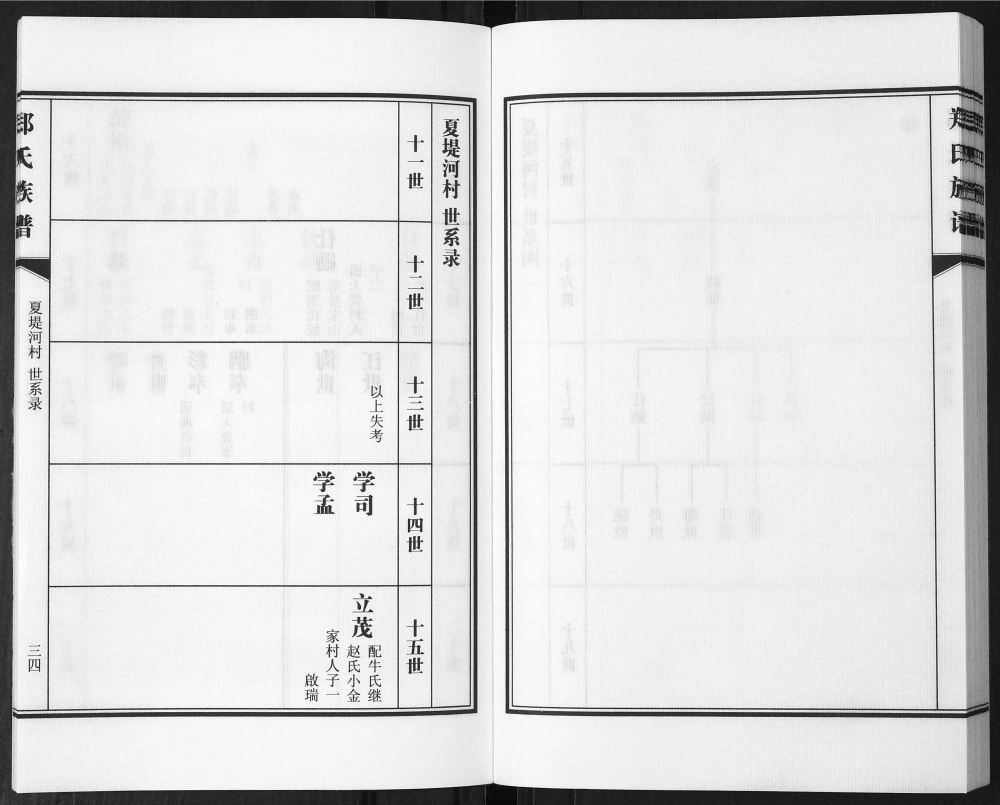 夏堤河村 世系录
十一世
十二世
十三世
以上失考
十四世
学司
学孟
十五世
立茂
配牛氏继
赵氏小金
家村人子一
啟瑞
郑氏族谱
夏堤河村 世系录
三四